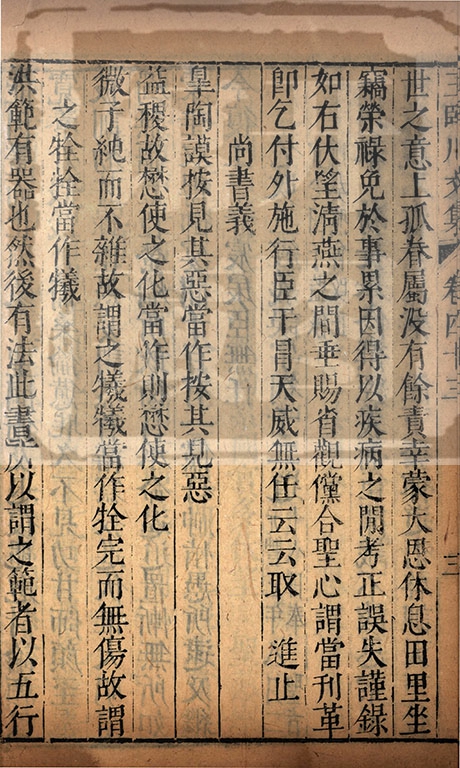 王臨川文集 卷四十三 三
世之意上孤眷屬沒有餘責幸蒙大恩休息田里坐
竊榮祿免於事累因得以疾病之閒考正誤失謹錄
如右伏望清燕之間垂賜省觀儻合聖心謂當刊革
卽乞付外施行臣干冒天威無任云云取 進止
尚書義
皐陶謨按見其惡當作按其見惡
益稷故懋使之化當作則懋使之化
微子純而不雜故謂之犧犧當作牷完而無傷故謂
之牷牷當作犧
洪範有器也然後有法此書所以謂之範者以五行